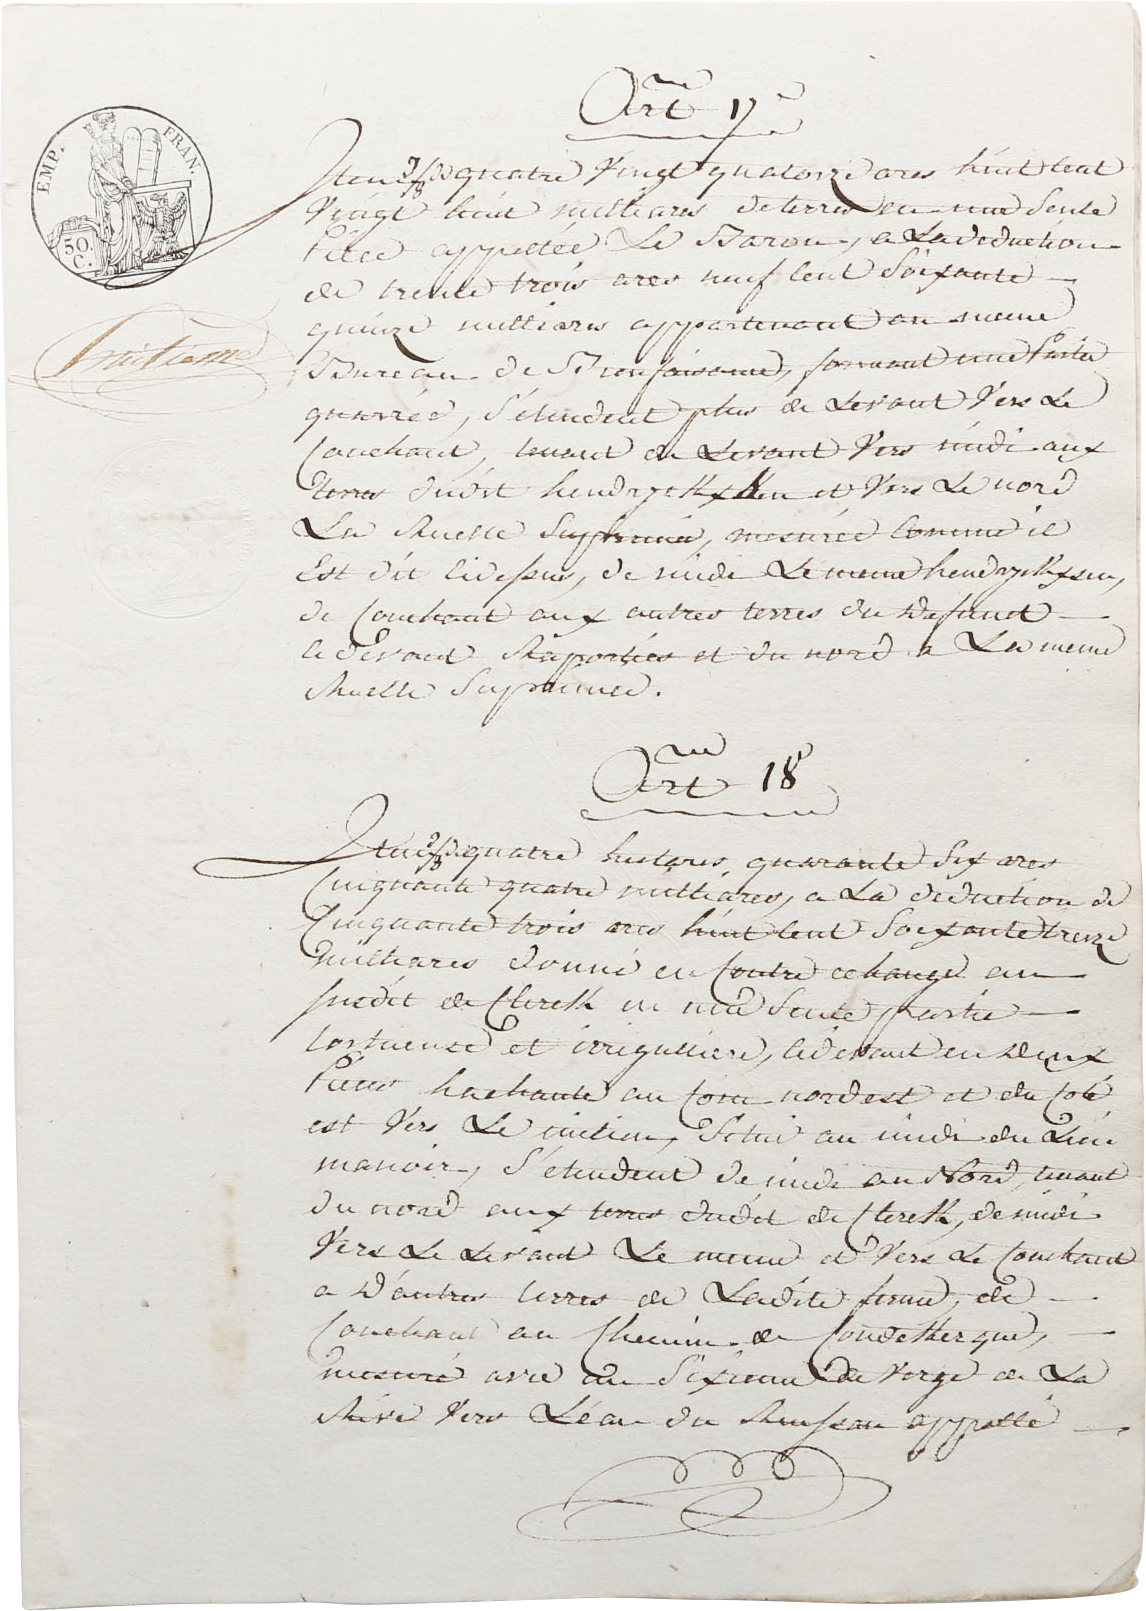 EMP. FRAN.
50 C.
huitième
Art 17
Item quatre vingt quatorze ares huit cent
vingt huit milliares de terres en une seule
piece appellée Le Baron, a La deduction
de trente trois ares neuf cent soixante
quinze milliares appartenant au meme
Bureau de Bienfaisance, formant une partie
quarrée, s'etendent plus de Levant Vers Le
Couchant, tenant du Levant Vers midi aux
terres dudit hendryckxsen et Vers Le nord
La Ruelle Suprimée, mesurée comme il
Est dit cidessus, de midi Le meme hendryckxsen,
de Couchant aux autres terres du defunct
cidevant Raportées et du nord a La meme
Ruelle Suprimée.
Art 18
Item quatre hectares quarante six ares
Cinquante quatre milliares, a La deduction de
Cinquante trois ares huit cent Soixante treize
milliares donné en Contre echange au
susdit de Clerck en une Seule partie
tortueuse et irregulliere, cidevant en deux
pieces hachante au Coin nordest et du Coté
est Vers Le milieu, Situé au midi du Lieu
manoir, s'etendent de midi au Nord, tenant
du nord aux terres dudit de Clerck, de midi
Vers Le Levant Le meme et Vers Le Couchant
a d'autres terres de Ladite ferme, de
Couchant au Chemin de Coudekerque,
mesuré avec un Sixieme de Verge de La
Rive Vers L'éau du Ruisseau appellé